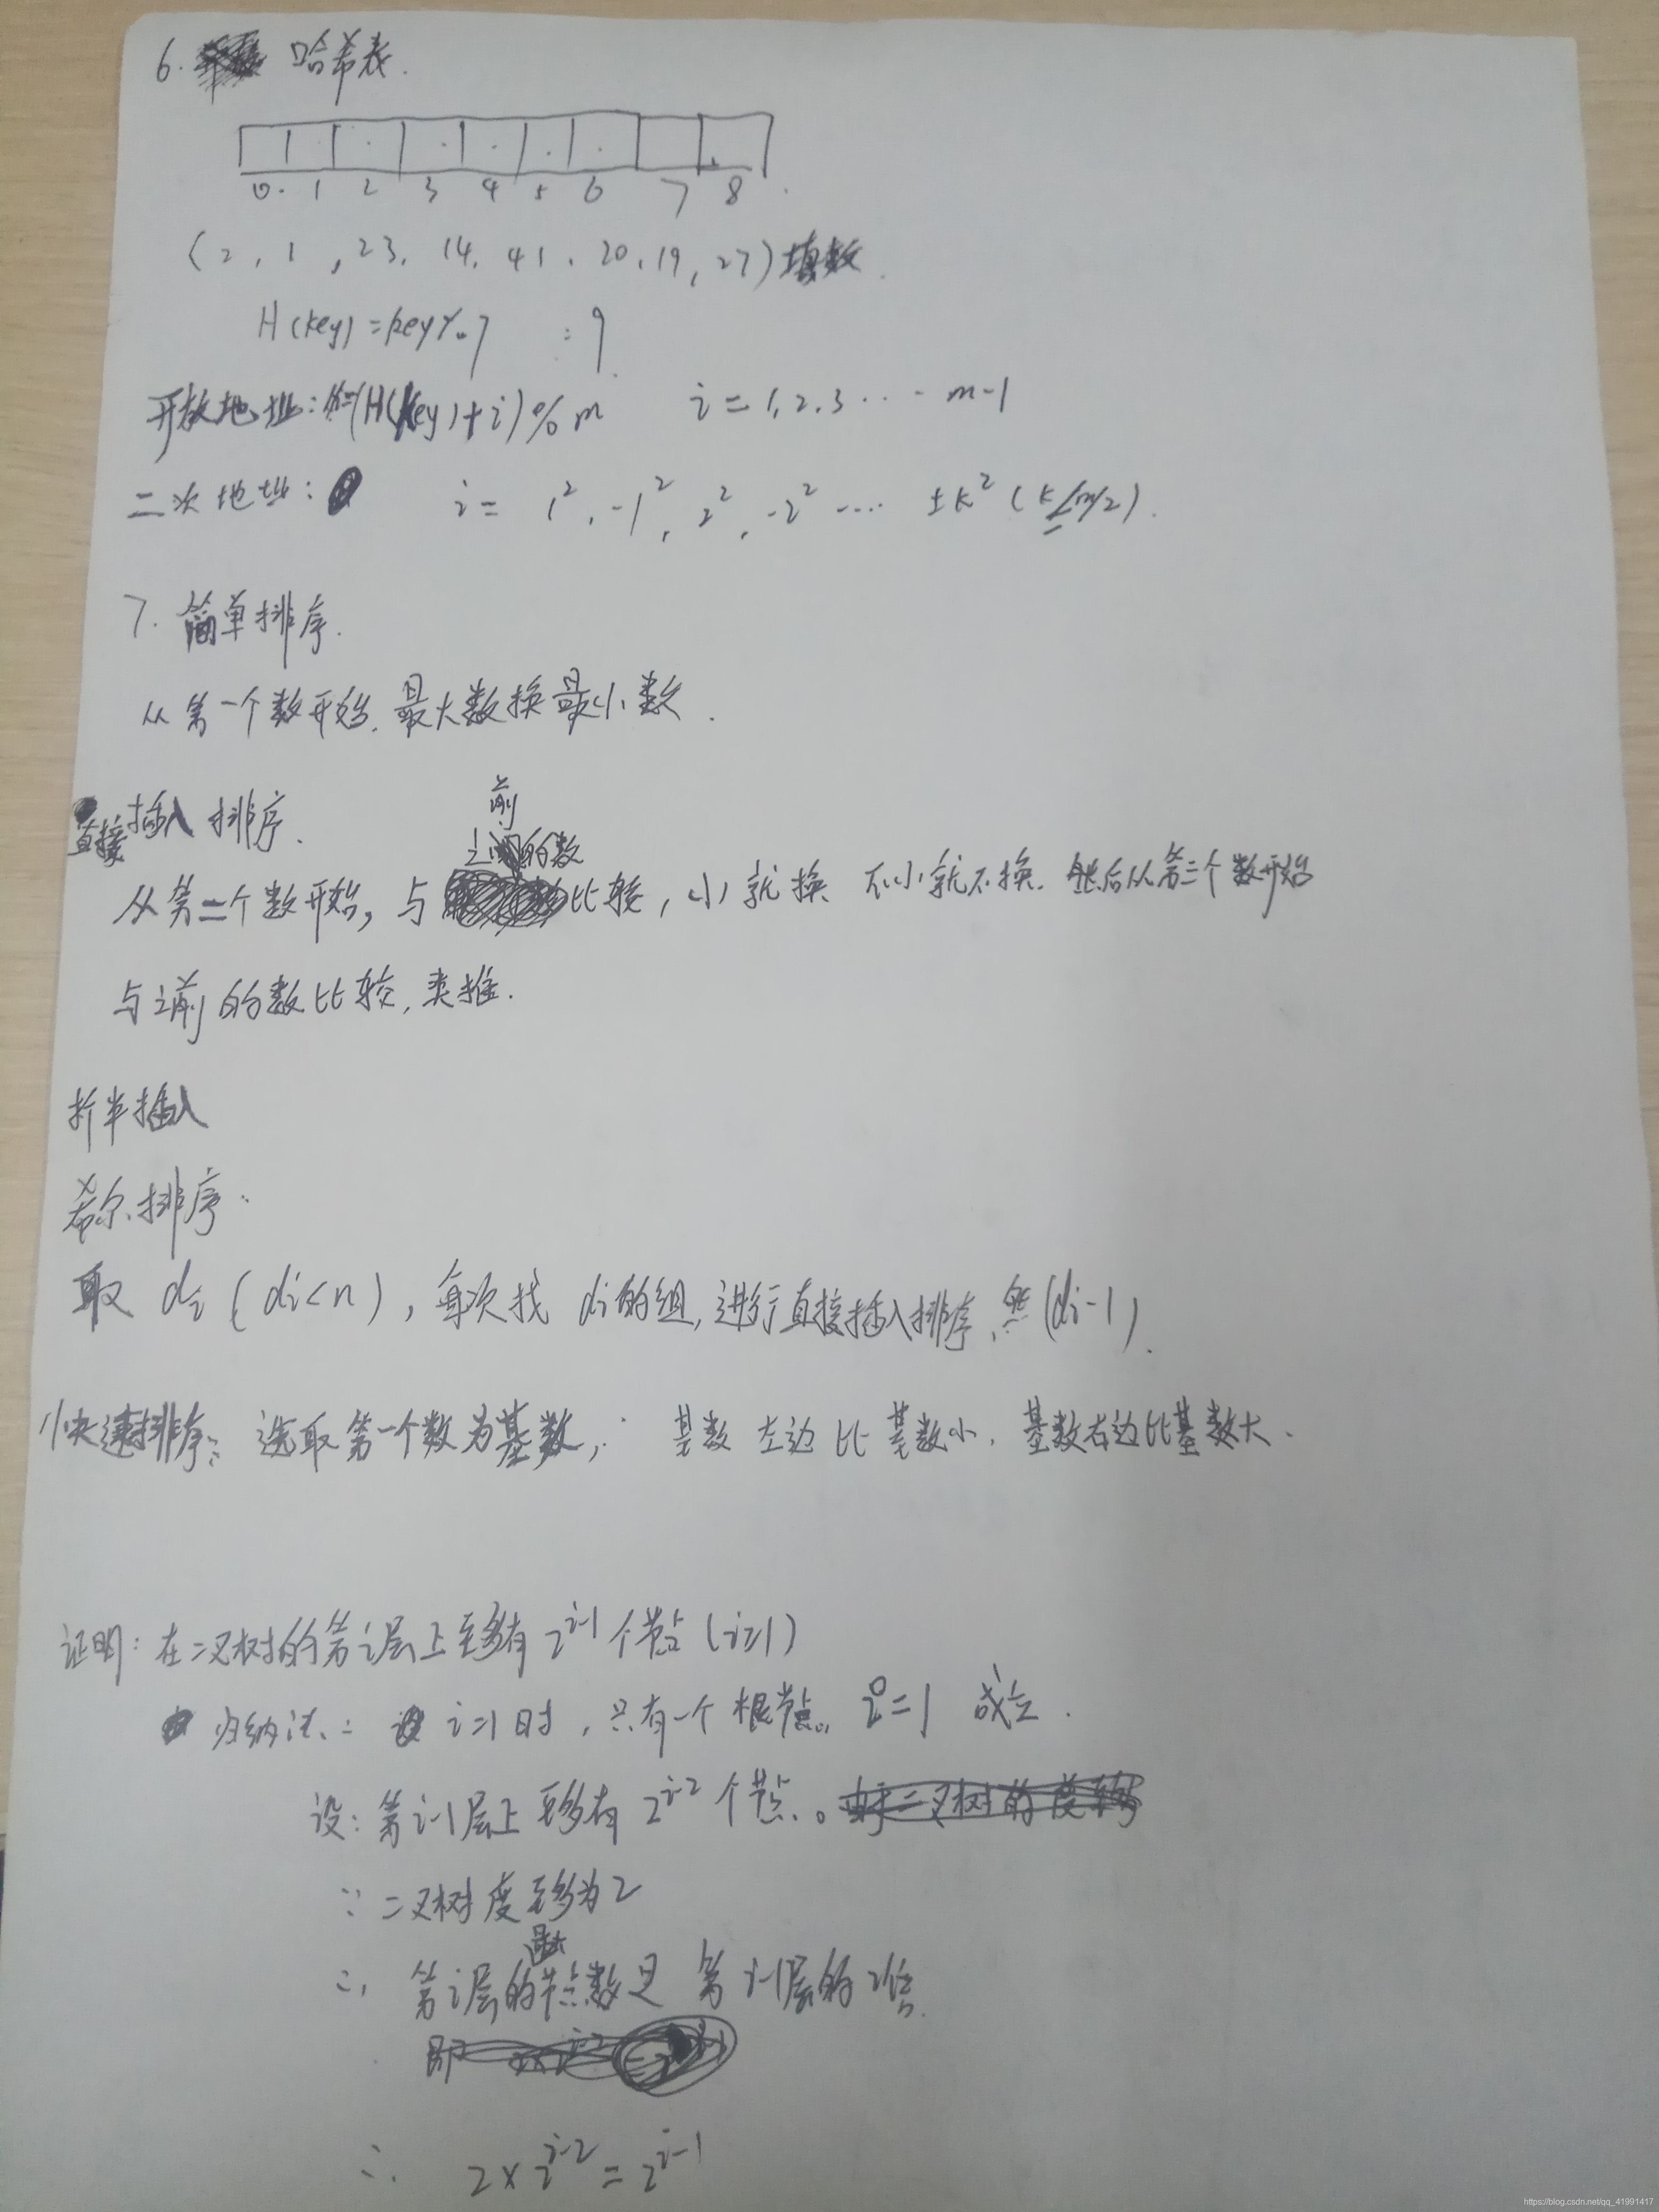 6. 哈希表.
0. 1 2 3 4 5 6 7 8
(2, 1, 23, 14, 41, 20, 19, 27) 填数
H(key) = key % 7 : 9
开放地址: (H(key)+i) % m i = 1, 2, 3 ··· m-1
二次地址: i = 1², -1², 2², -2² ···· ±k² (k≤m/2).
7. 简单排序.
从第一个数开始, 最大数换最小数.
直接插入排序.
从第二个数开始, 与之前的数比较, 小就换 不小就不换. 然后从第三个数开始
与之前的数比较, 类推.
折半插入
希尔排序:
取 di (di<n), 每次找 di的组, 进行直接插入排序, 然(di-1).
快速排序: 选取第一个数为基数, 基数左边比基数小, 基数右边比基数大.
证明: 在二叉树的第i层上至多有 2^(i-1) 个节点 (i≥1)
归纳法: i=1时, 只有一个根节点. 2⁰=1 成立.
设: 第i-1层上至多有 2^(i-2) 个节点.
∵ 二叉树度至多为2
∴ 第i层的最大节点数是 第i-1层的2倍.
∴ 2×2^(i-2) = 2^(i-1)
https://blog.csdn.net/qq_41991417